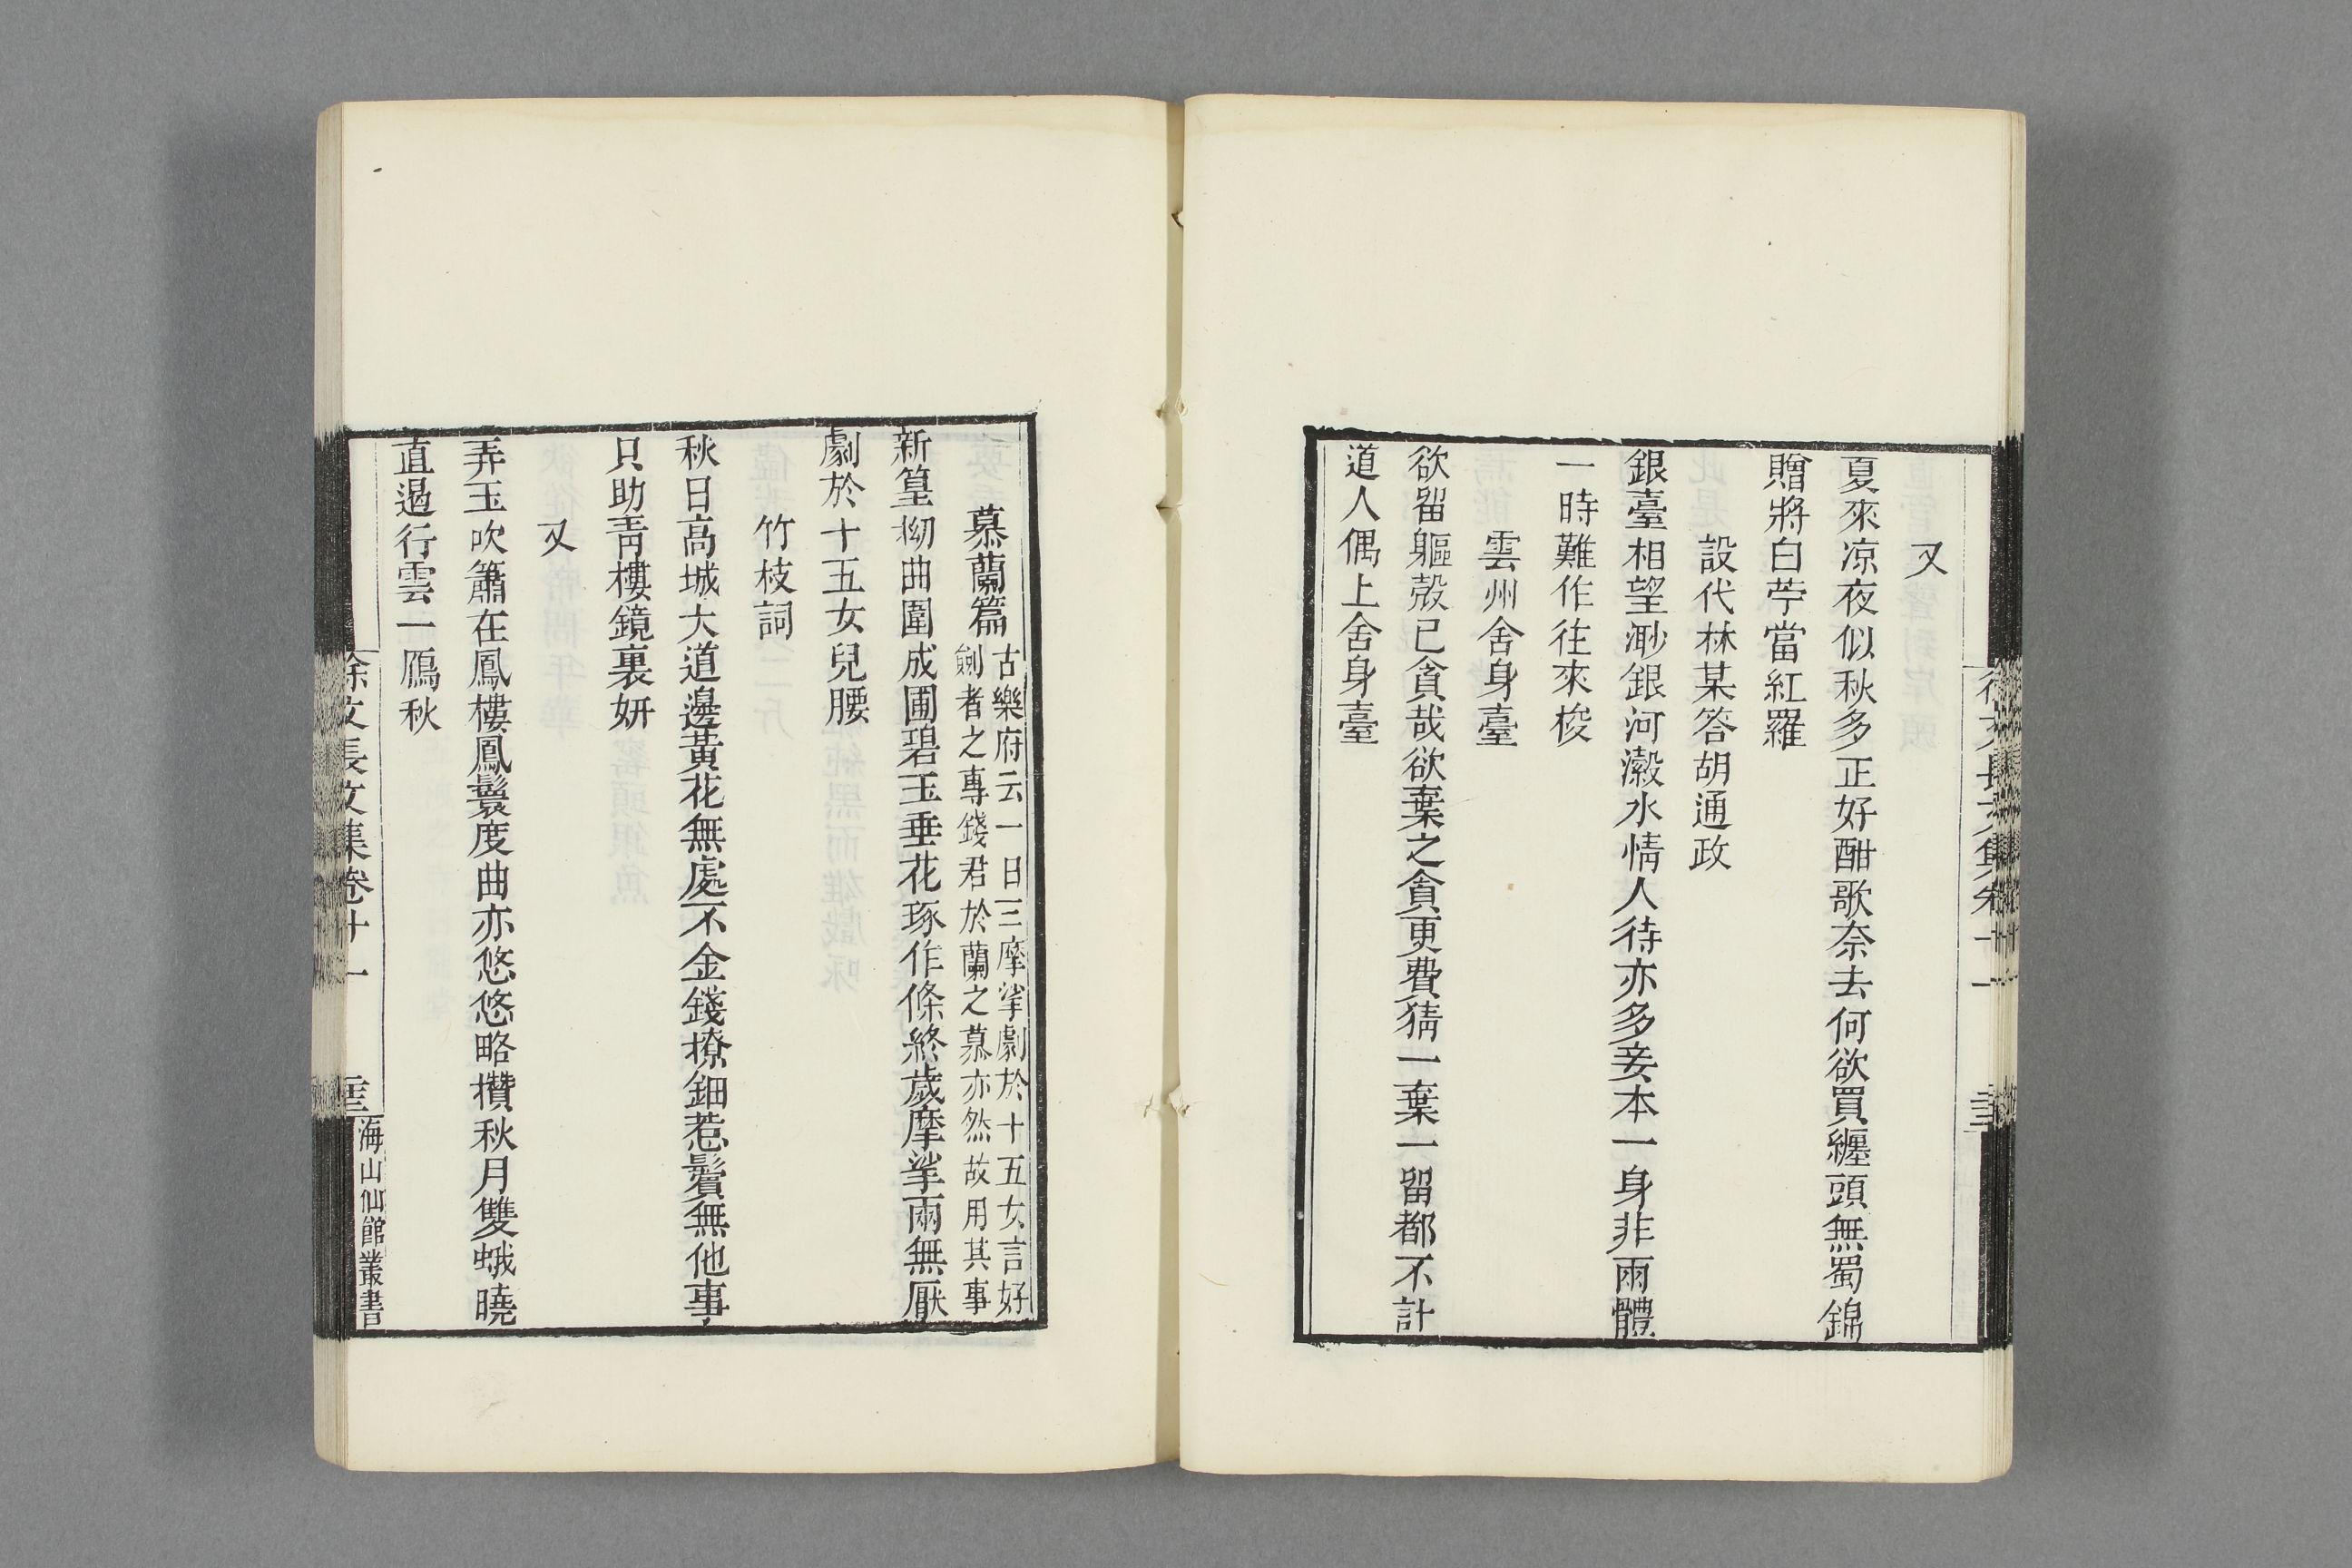 又
夏來凉夜似秋多正好酣歌奈去何欲買纏頭無蜀錦
贈將白苧當紅羅
設代林某答胡通政
銀臺相望渺銀河瀫水情人待亦多妾本一身非兩體
一時難作往來梭
雲州舍身臺
欲留軀殻已貪哉欲棄之貪更費猜一棄一留都不計
道人偶上舍身臺
慕蘭篇
古樂府云一日三摩挲劇於十五女言好
劍者之專錢君於蘭之慕亦然故用其事
新篁拗曲圍成圃碧玉垂花琢作條終歲摩挲兩無厭
劇於十五女兒腰
竹枝詞
秋日高城大道邊黃花無處不金錢撩鈿惹鬢無他事
只助靑樓鏡裏妍
又
弄玉吹簫在鳳樓鳳鬟度曲亦悠悠略攢秋月雙蛾曉
直過行雲一鴈秋
徐文長文集卷十一
海山仙館叢書